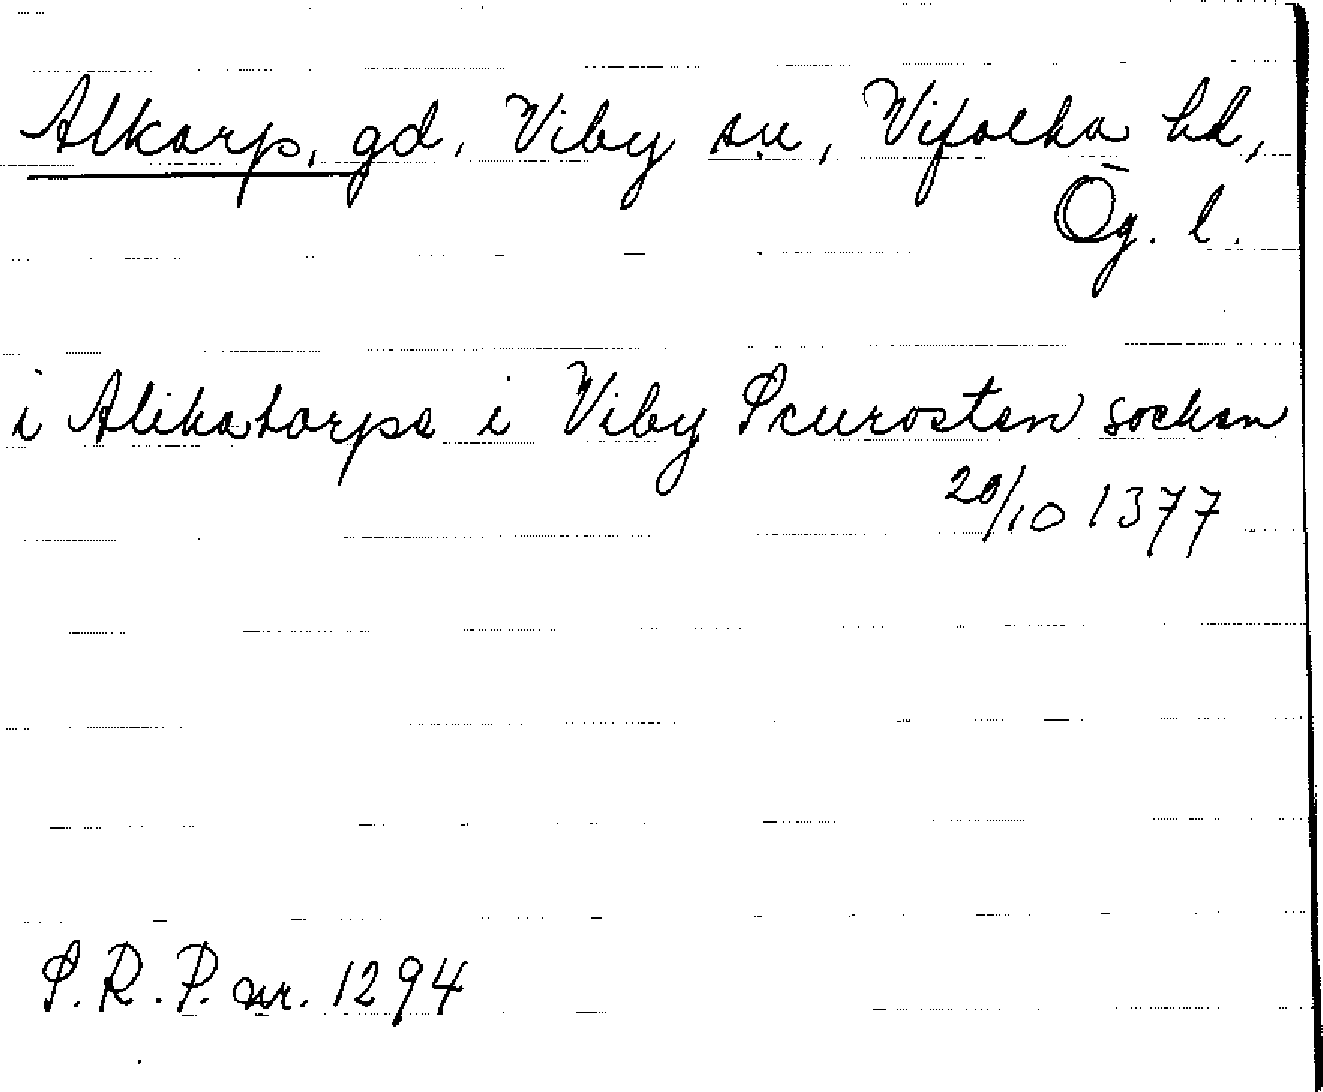 Alkarp, gd, Viby sn, Vifolka hd,
Ög. l.
i Alikatorpe i Viby Scurostan sockan
20/10 1377
S. R. P. nr. 1294